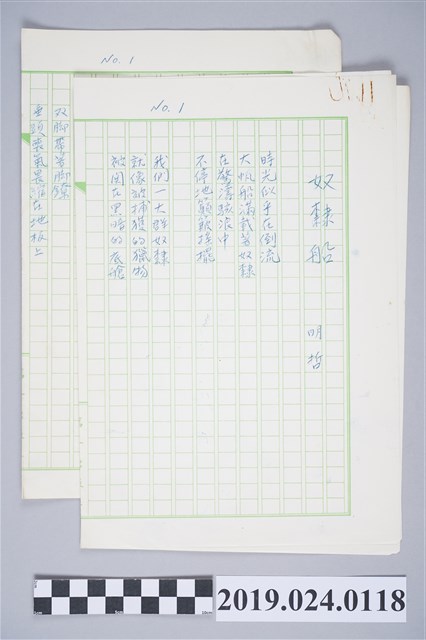 No. 1
奴隸船
明哲
時光似乎在倒流
大帆船滿載著奴隸
在驚濤駭浪中
不停地顛簸搖擺
我們一大群奴隸
就像被捕獲的獵物
被囚在黑暗的底艙
No. 1
双腳帶著腳鐐
垂頭喪氣畏縮在地板上
2019.024.0118